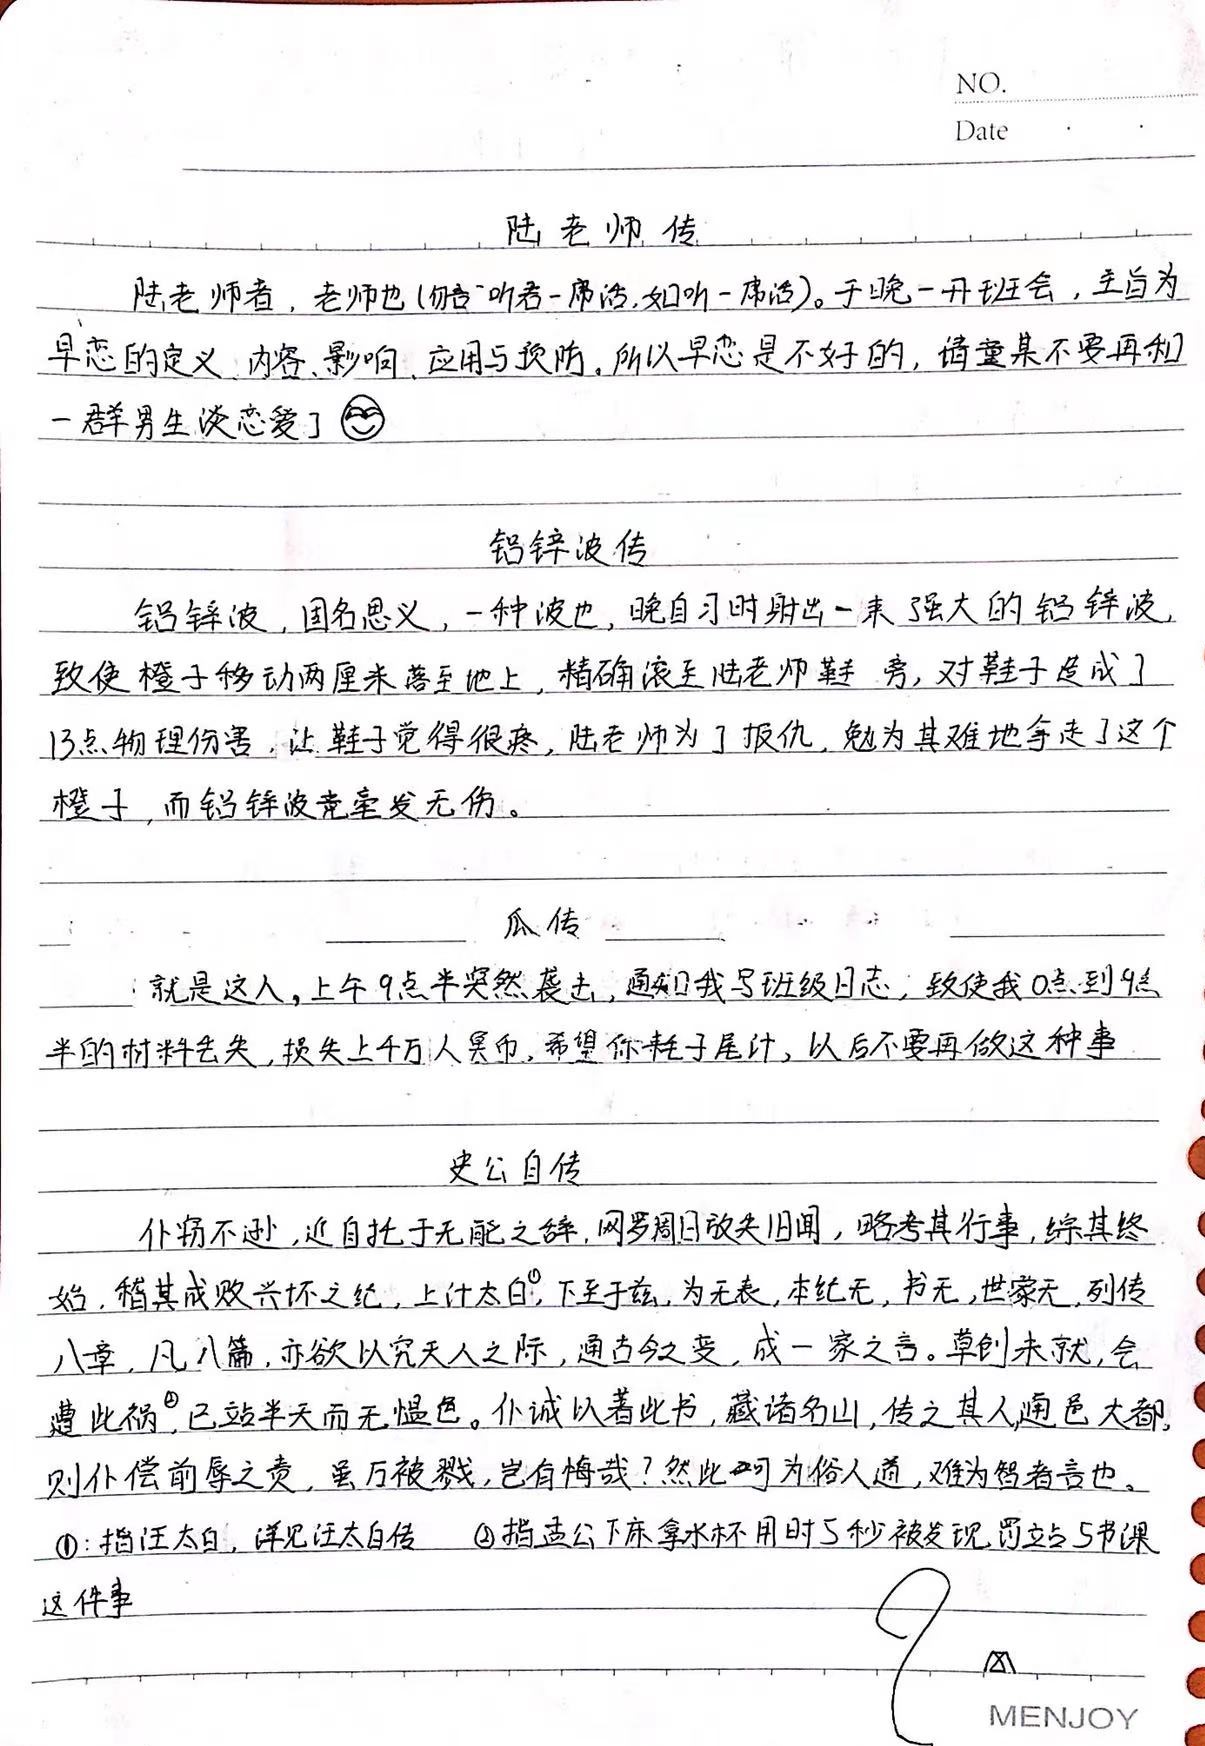 NO.
Date
陆老师传
陆老师者，老师也(俗言"听君一席话，如听一席话)。于晚一开班会，主旨为
早恋的定义、内容、影响、应用与预防。所以早恋是不好的，请董某不要再和
一群男生谈恋爱了
铝锌波传
铝锌波，固名思义，一种波也，晚自习时射出一束强大的铝锌波，
致使橙子移动两厘米落至地上，精确滚至陆老师鞋旁，对鞋子造成了
13点物理伤害，让鞋子觉得很疼，陆老师为了报仇，勉为其难地拿走了这个
橙子，而铝锌波竟毫发无伤。
瓜传
就是这人，上午9点半突然袭击，通知我写班级日志，致使我0点到9点
半的材料丢失，损失上千万人冥币，希望你耗子尾汁，以后不要再做这种事
史公自传
仆窃不逊，近自托于无能之辞，网罗周日放失旧闻，略考其行事，综其终
始，稽其成败兴坏之纪，上计太白①，下至于兹，为无表，本纪无，书无，世家无，列传
八章，凡八篇，亦欲以究天人之际，通古今之变，成一家之言。草创未就，会
遭此祸②，已站半天而无愠色。仆诚以著此书，藏诸名山，传之其人通邑大都，
则仆偿前辱之责，虽万被戮，岂有悔哉？然此可为俗人道，难为智者言也。
①：指汪太白，详见汪太白传 ②指孟公下床拿水杯用时5秒被发现罚站5节课
这件事
MENJOY